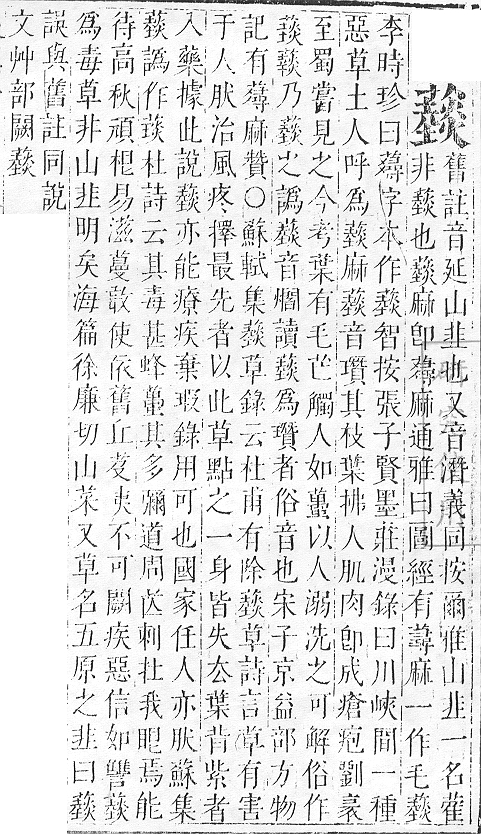 䕭
舊註音延山韭也又音潛義同按爾雅山韭一名藿
非䕭也䕭麻卽蕁麻通雅曰圖經有蕁麻一作毛䕭
李時珍曰蕁字本作䕭智按張子賢墨莊漫錄曰川峽間一種
惡草土人呼爲䕭麻䕭音瓚其枝葉拂人肌肉卽成瘡疱劉袤
至蜀嘗見之今考葉有毛芒觸人如蠆以人溺洗之可解俗作
䕭䕭乃䕭之譌䕭音燗讀䕭爲瓚者俗音也宋子京益部方物
記有蕁麻贊○蘇軾集䕭草錄云杜甫有除䕭草詩言草有害
于人肰治風疼擇最先者以此草點之一身皆失去葉背紫者
入藥據此說䕭亦能療疾棄瑕錄用可也國家任人亦肰蘇集
䕭譌作杜詩云其毒甚蜂蠆其多彌道周芒刺在我眼焉能
待高秋頑根易滋蔓敢使依舊丘芟夷不可闕疾惡信如讐䕭
爲毒草非山韭明矣海篇徐廉切山菜又草名五原之韭曰䕭
誤與舊註同說
文艸部闕䕭